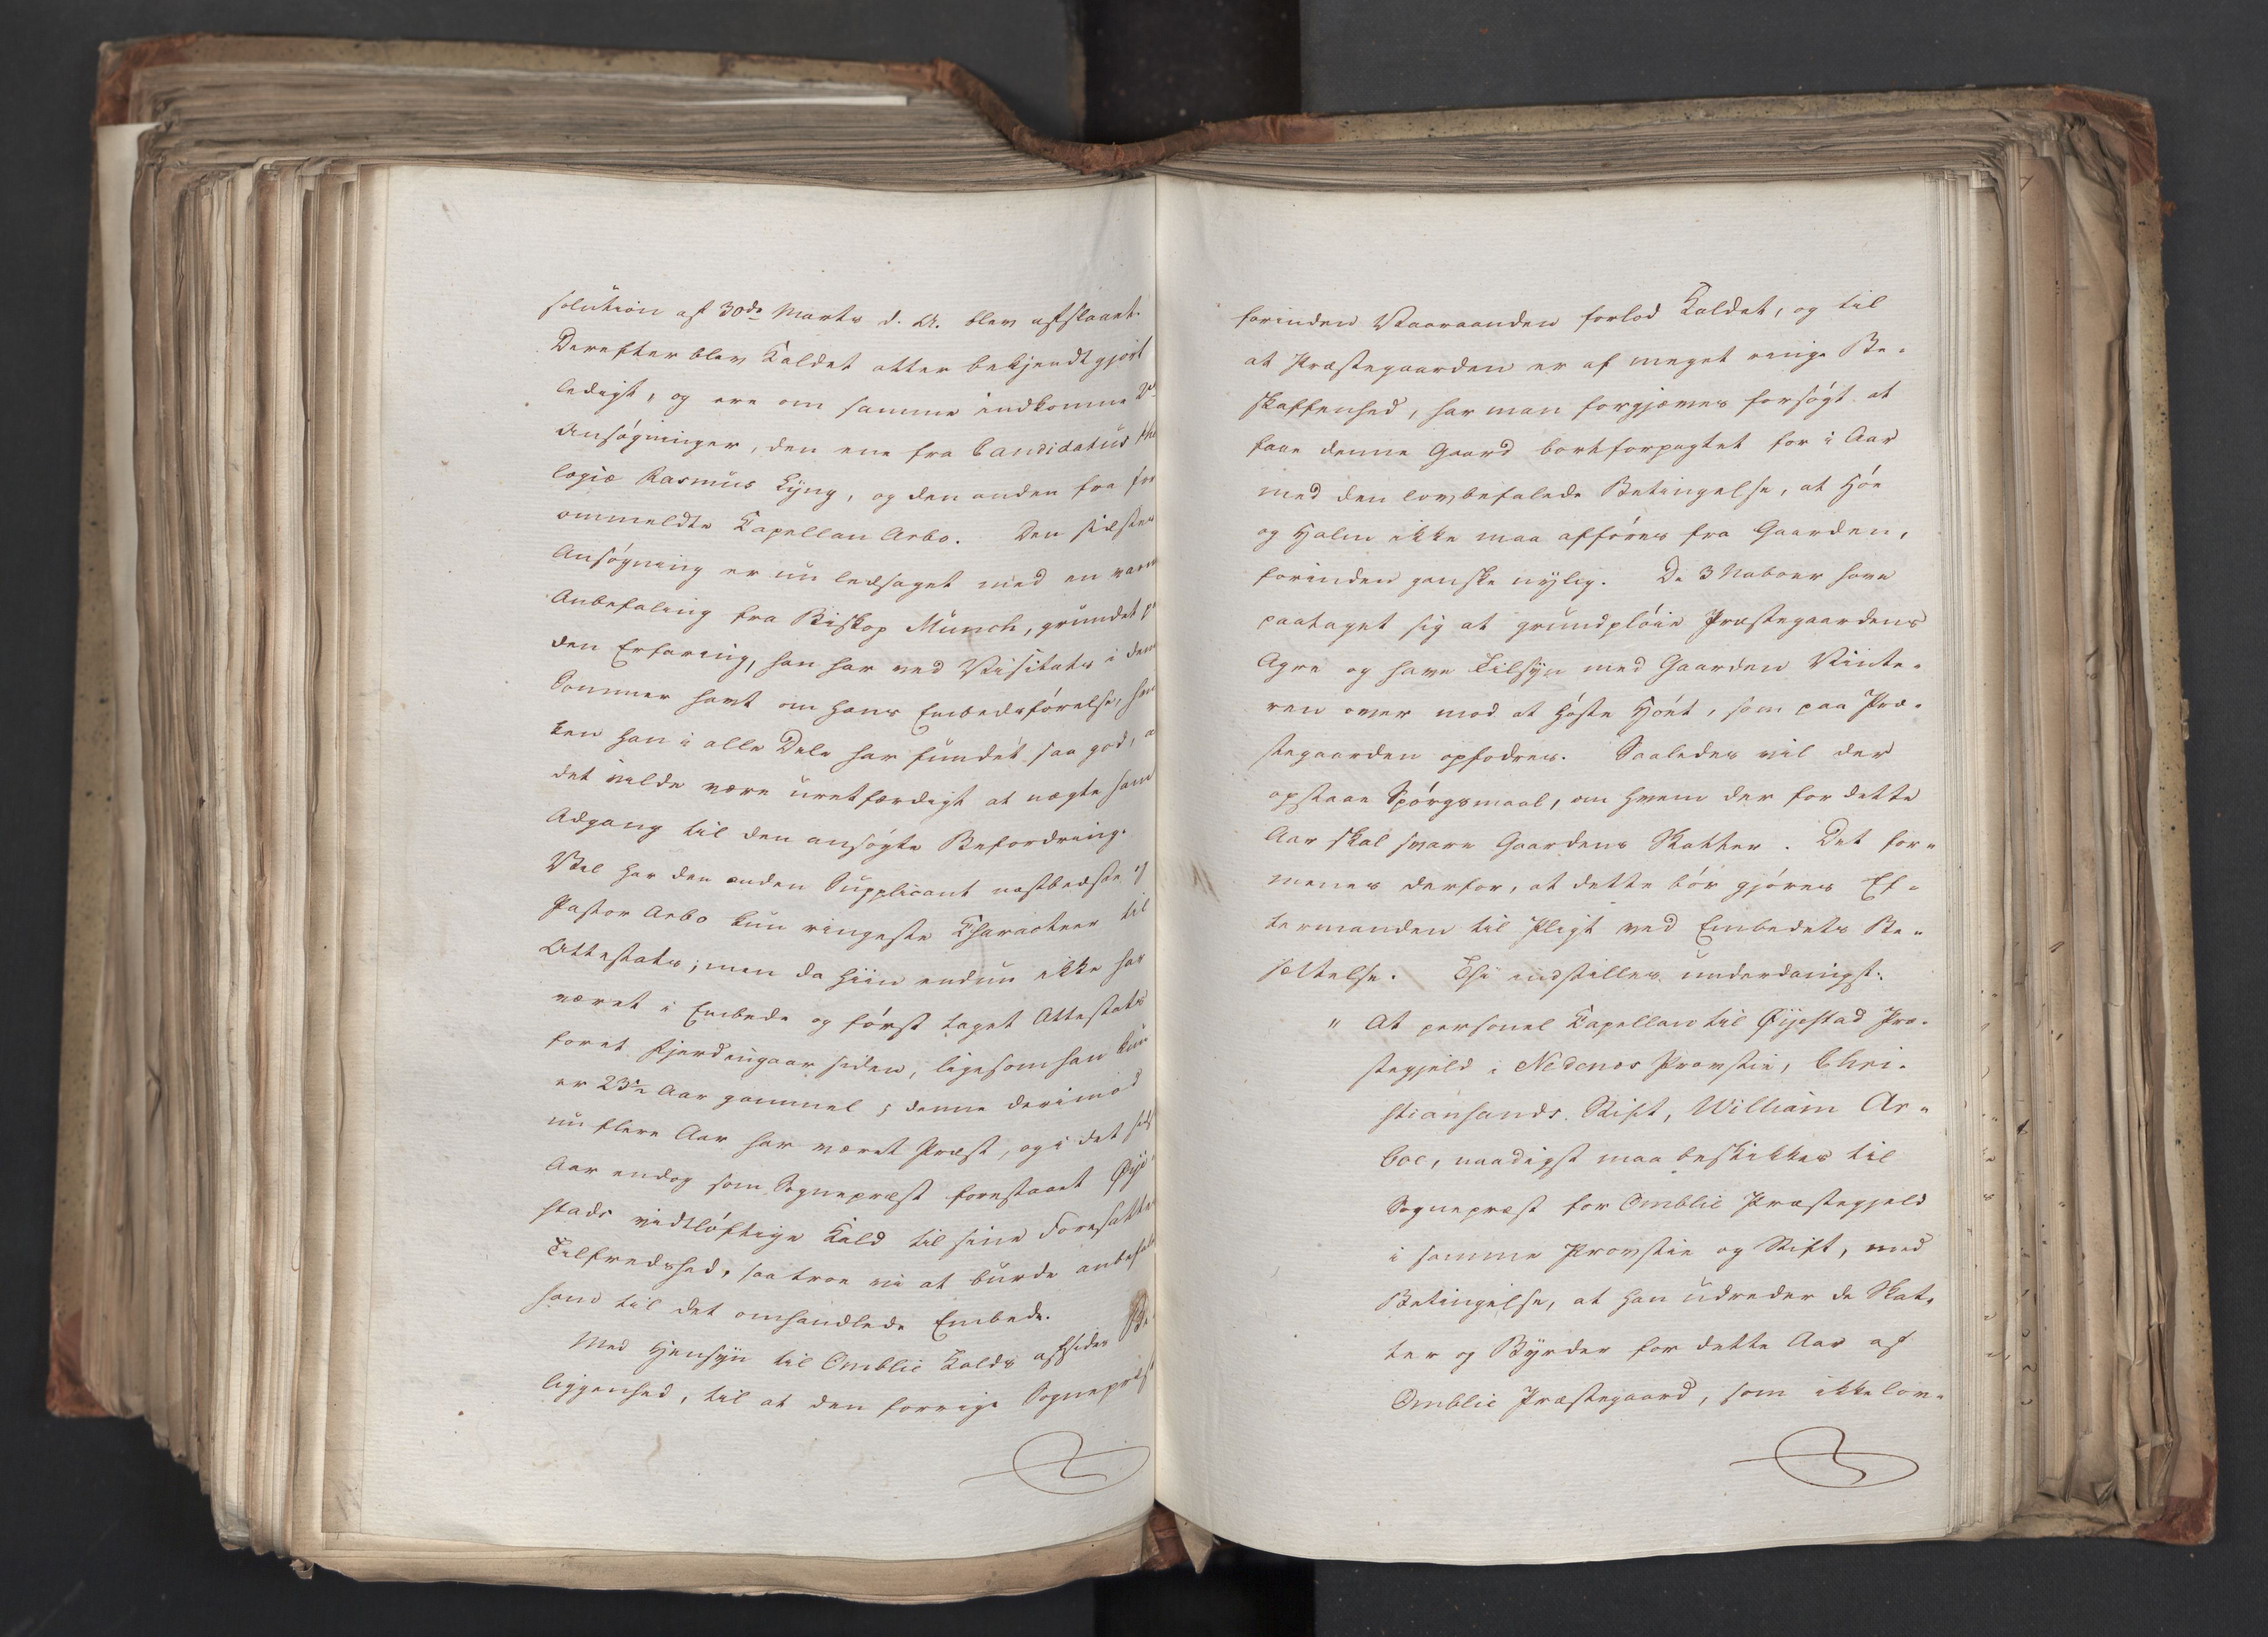 solution af 30de Marts d. A. blev afslaaet.
Derefter blev Kaldet atter bekjendtgjort
ledigt, og ere om samme indkomne 2de
Ansøgninger, den ene fra Candidatus theo
logiæ Rasmus Lyng, og den anden fra for
ommeldte Kapellan Arbo. Den sidstes
Ansøgning er nu ledsaget med en varm
Anbefaling fra Biskop Munch, grundet p
den Erfaring, han har ved Visitats i denne
Sommer havt om hans Embedsførelse, hvil
ken han i alle Dele har fundet saa god, a
det vilde være uretfærdigt at nægte ham
Adgang til den ansøgte Befordring.
Vel har den anden Supplicant næstbedste og
Pastor Arbo kun ringeste Charakteer til
Attestats; men da hiin endnu ikke har
været i Embede og først taget Attestats
for et Fjerdingaar siden, ligesom han kun
er 23½ Aar gammel; denne derimod
nu flere Aar har været Præst, og i det sidste
Aar endog som Sognepræst forestaaet Øje-
stads vidtløftige Kald til sine Foresattes
Tilfredshed, saa troe vi at burde anbefale
ham til det omhandlede Embede.
Med Hensyn til Omblie Kalds afsides Be-
liggenhed, til at den forrige Sognepræst
forinden Vaaraanden forlod Kaldet, og til
at Præstegaarden er af meget ringe Be-
skaffenhed, har man forgjæves forsøgt at
faae denne Gaard bortforpagtet for i Aar
med den lovbefalede Betingelse, at Høe
og Halm ikke maa afføres fra Gaarden,
forinden ganske nylig. De 3 Naboer have
paataget sig at grundpløie Præstegaardens
Agre og have Tilsyn med Gaarden Vinte-
ren over mod at høste Høet, som paa Præ-
stegaarden opfodres. Saaledes vil der
opstaae Spørgsmaal, om hvem der for dette
Aar skal svare Gaardens Skatter. Det for-
menes derfor, at dette bør gjøres Ef-
termanden til Pligt ved Embedets Be-
sættelse. Thi indstilles underdanigst:
" At personel Kapellan til Øijestad Præ-
stegjeld i Nedenes Provstie, Chri-
stiansands Stift, William Ar-
boe, naadigst maa beskikkes til
Sognepræst for Omblie Præstegjeld
i samme Provstie og Stift, med
Betingelse, at han udreder de Skat-
ter og Byrder for dette Aar af
Omblie Præstegaard, som ikke lov-